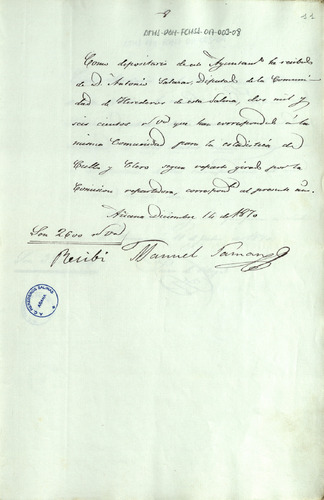 8
11
Como depositario de este Ayuntamto he recibido
de D. Antonio Salinas, Diputado de la Comuni
dad de Herederos de esta Salina, dos mil y
seis cientos r v que han correspondido á la
misma Comunidad para la
Culto y Clero segun reparto girado por la
Comision repartidora, correspond al presente año.
Añana Diciembre 14 de 1870
Son 2600 r vn
Recibí Manuel